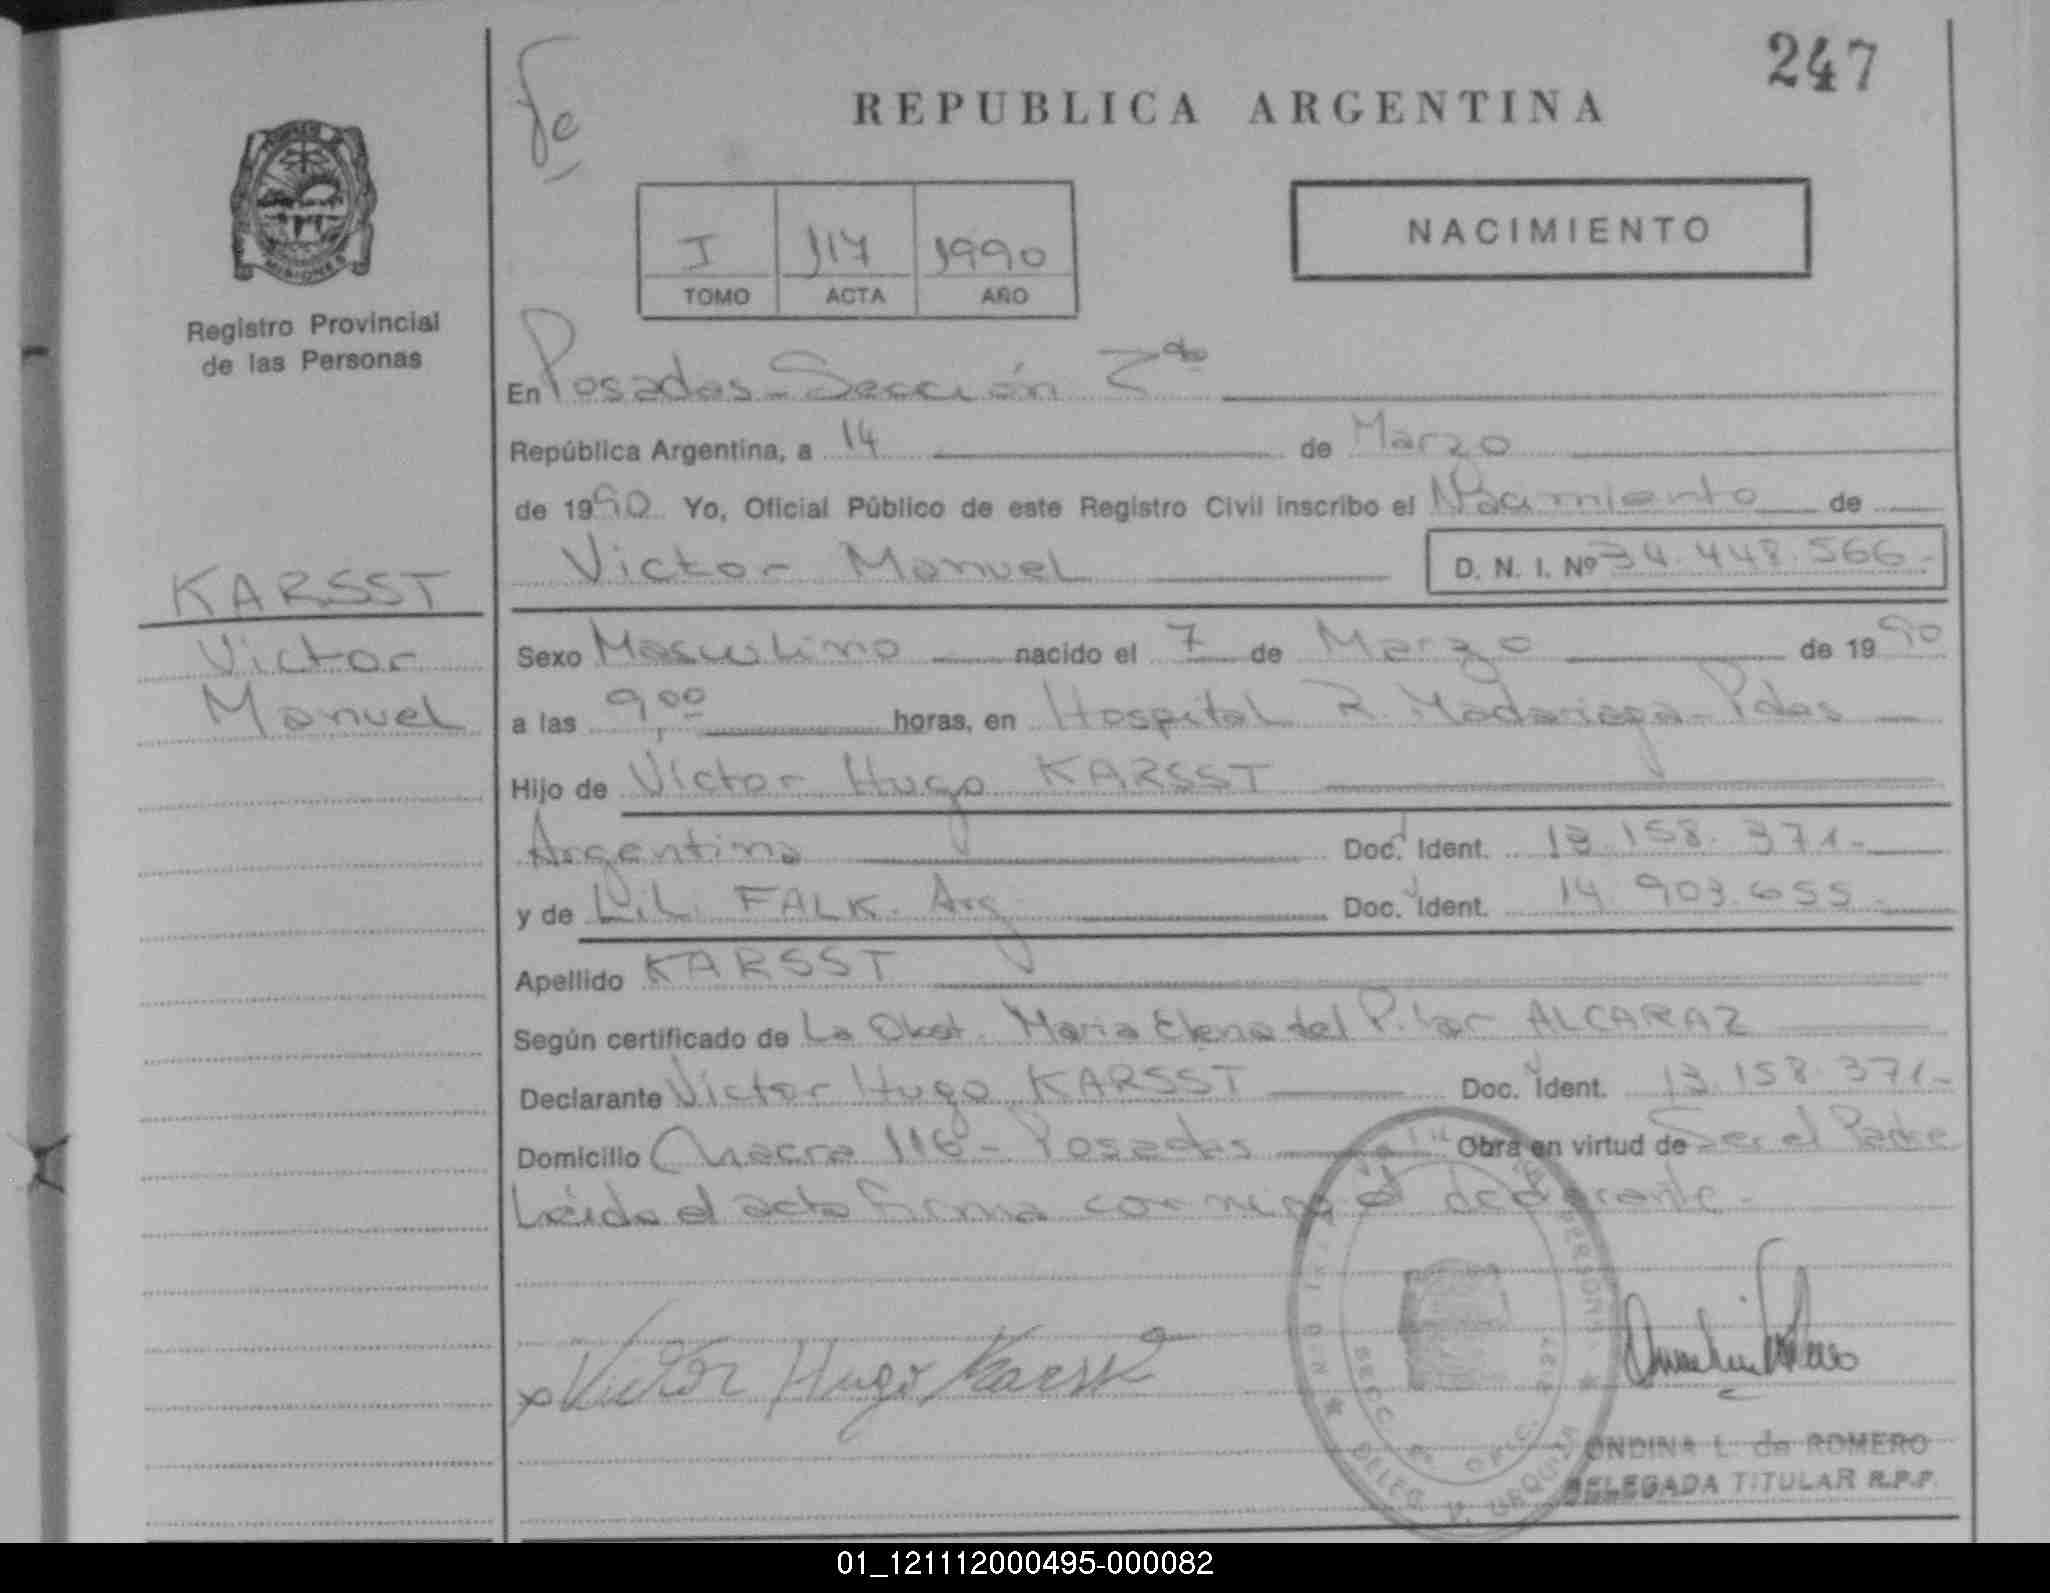 247
Fe
REPUBLICA ARGENTINA
MISIONES
Registro Provincial
de las Personas
I 117 1990
TOMO ACTA AÑO
NACIMIENTO
En Posadas - Sección
República Argentina, a 14 de Marzo
de 1990 Yo, Oficial Público de este Registro Civil inscribo el Nacimiento de
Victor Manuel D. N. I. Nº 34.448.566-
KARSST
Victor
Manuel
Sexo Masculino nacido el 7 de Marzo de 1990
a las 9,00 horas, en Hospital R. Madariaga - Pdas
Hijo de Victor Hugo KARSST
Argentino Doc. Ident. 13.158.371-
y de Lili FALK. Arg Doc. Ident. 14.903.655-
Apellido KARSST
Según certificado de La Obst. Maria Elena del Pilar ALCARAZ
Declarante Victor Hugo KARSST Doc. Ident. 13.158.371-
Domicilio Chacra 116 - Posadas Obra en virtud de Ser el Padre
Leída el acta firma conmigo el declarante-
x Victor Hugo Karsst
ONDINA L. de ROMERO
DELEGADA TITULAR R.P.P.
DELEG. V. URQUIZA
01_121112000495-000082